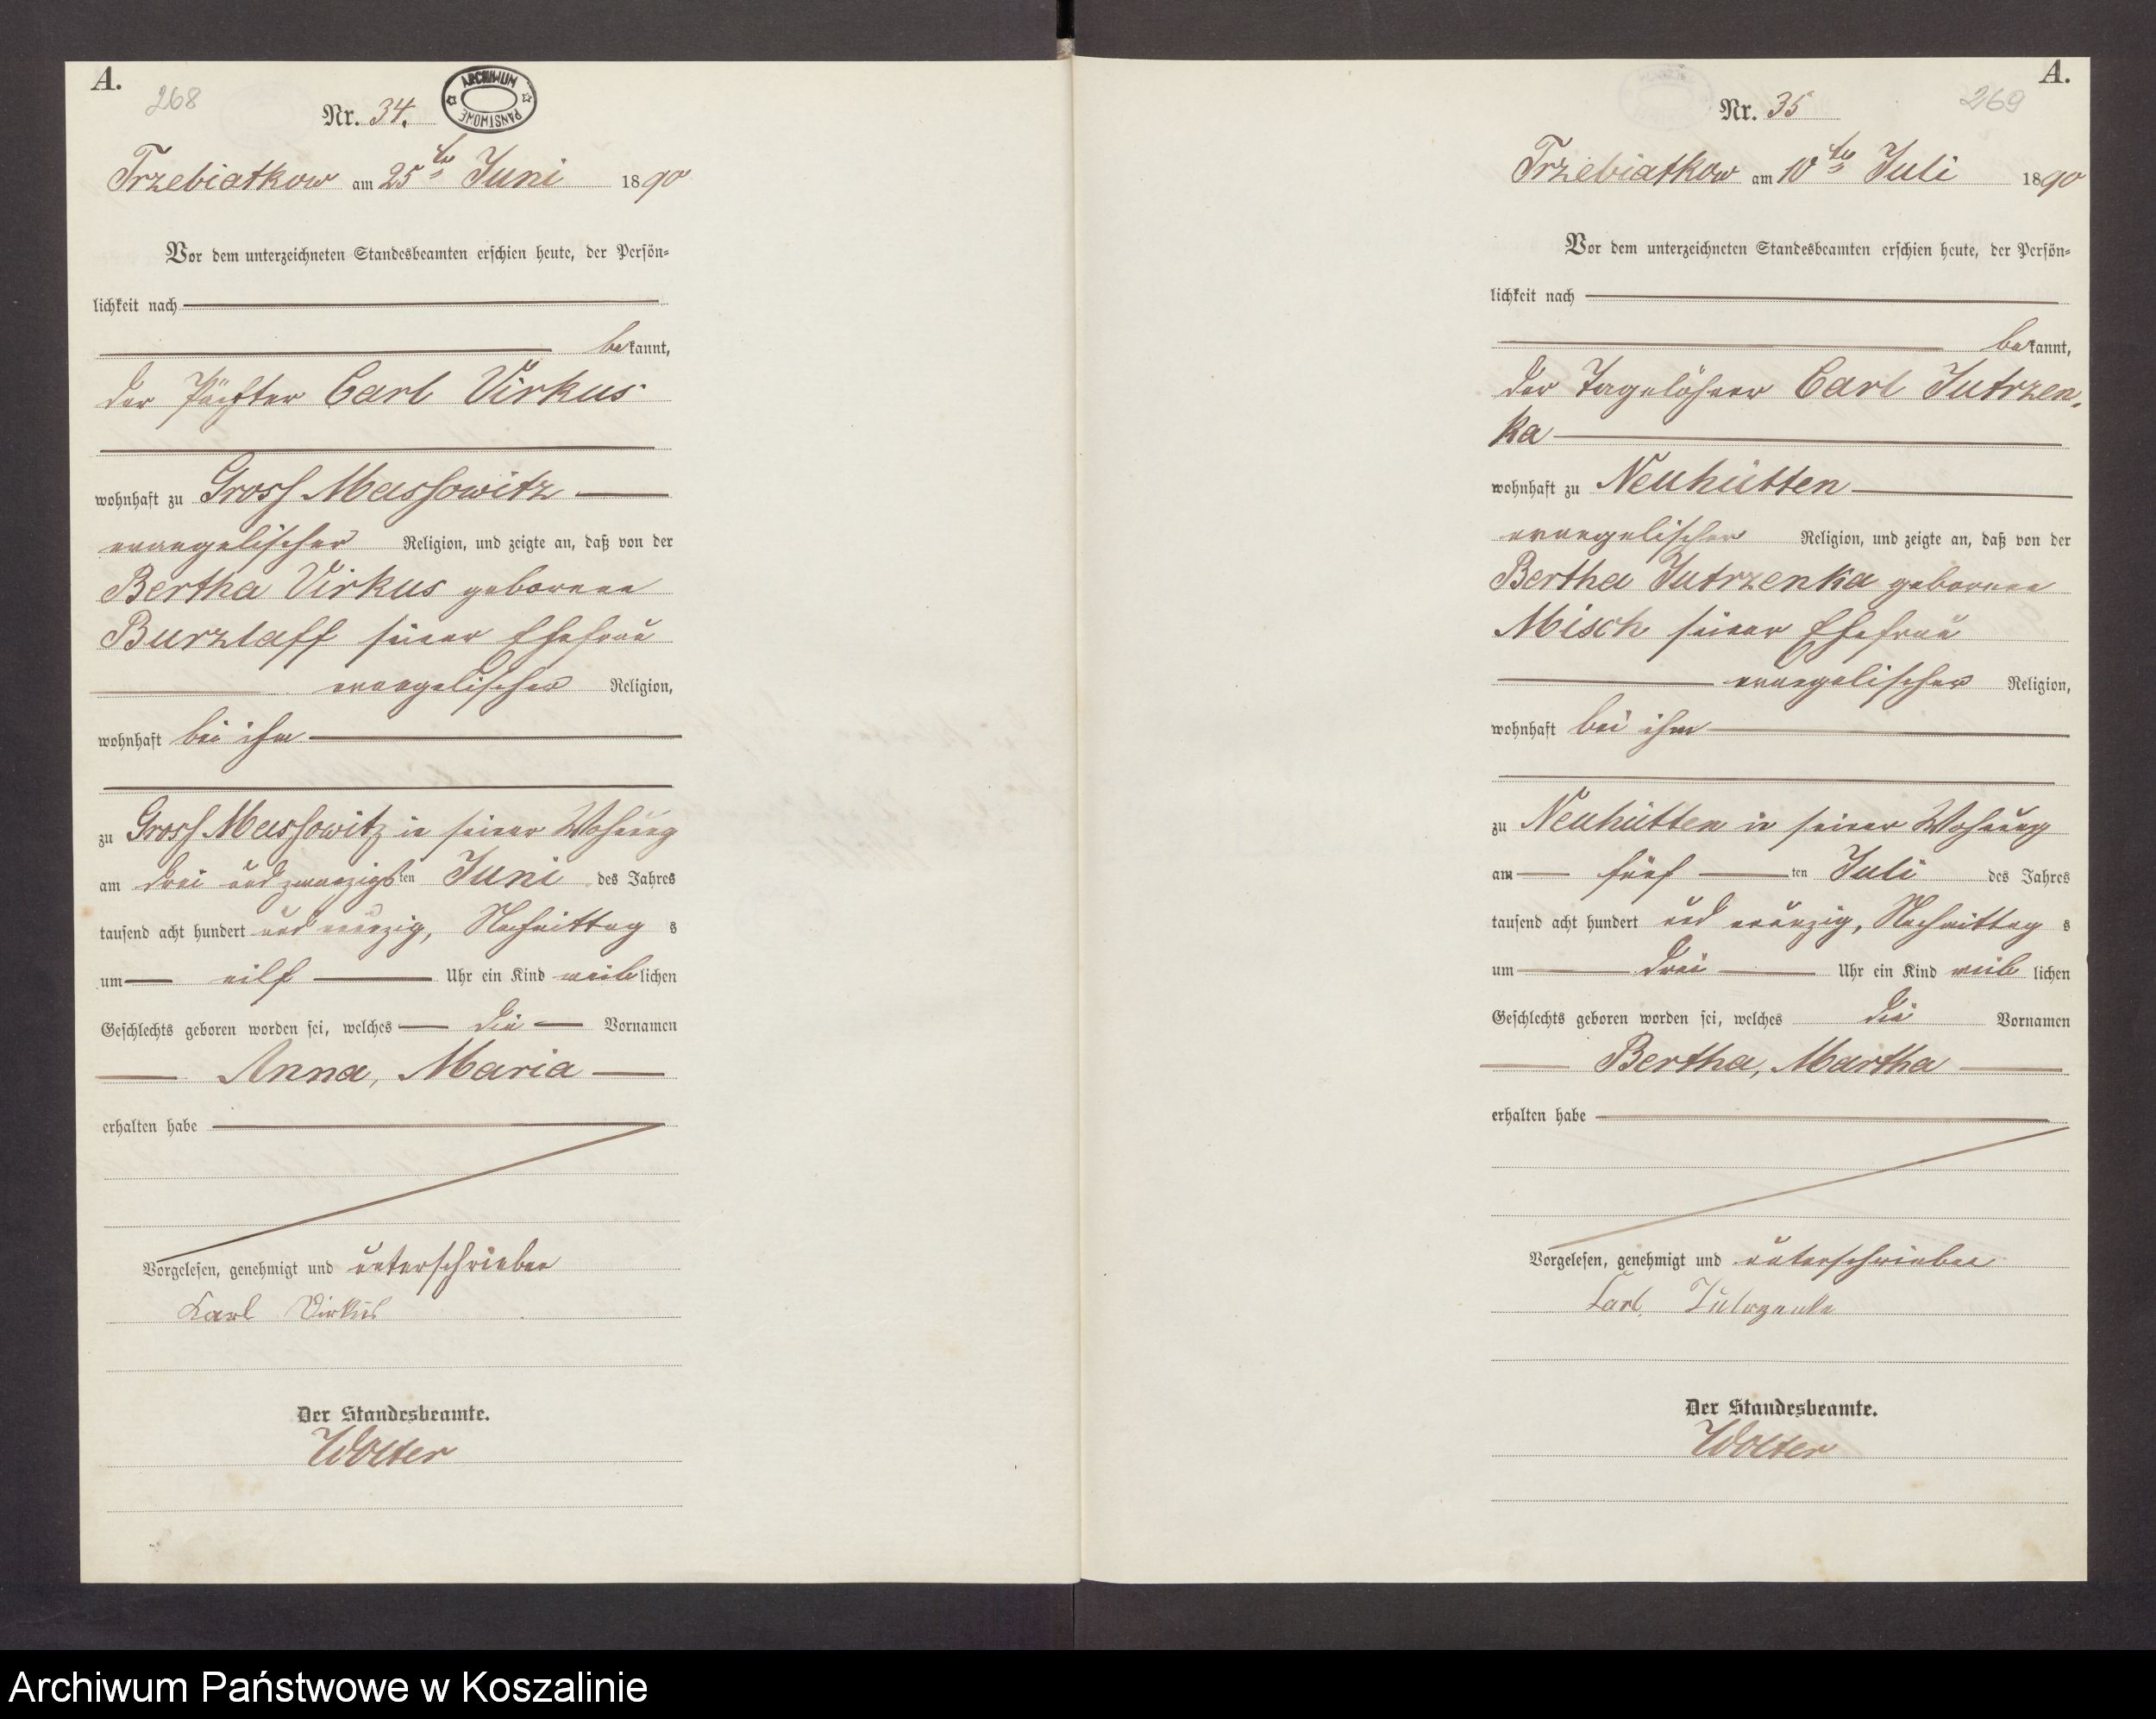 A.
268
Nr. 34.
ARCHIWUM PAŃSTWOWE
Trzebiatkow am 25ten Juni 1890
Vor dem unterzeichneten Standesbeamten erschien heute, der Persön-
lichkeit nach
bekannt,
der Pächter Carl Virkus
wohnhaft zu Gross Massowitz
evangelischer Religion, und zeigte an, daß von der
Bertha Virkus geborenen
Burzlaff seiner Ehefrau
evangelischer Religion,
wohnhaft bei ihm
zu Gross Massowitz in seiner Wohnung
am drei und zwanzigsten Juni des Jahres
tausend acht hundert und neunzig, Nachmittag s
um eilf Uhr ein Kind weiblichen
Geschlechts geboren worden sei, welches die Vornamen
Anna, Maria
erhalten habe
Vorgelesen, genehmigt und unterschrieben
Karl Virkus
Der Standesbeamte.
Wolter
A.
269
Nr. 35
Trzebiatkow am 10ten Juli 1890
Vor dem unterzeichneten Standesbeamten erschien heute, der Persön-
lichkeit nach
bekannt,
der Tagelöhner Carl Jutrzen-
ka
wohnhaft zu Neuhütten
evangelischer Religion, und zeigte an, daß von der
Bertha Jutrzenka geborene
Misch seiner Ehefrau
evangelischer Religion,
wohnhaft bei ihm
zu Neuhütten in seiner Wohnung
am fünf ten Juli des Jahres
tausend acht hundert und neunzig, Nachmittag s
um drei Uhr ein Kind weib lichen
Geschlechts geboren worden sei, welches die Vornamen
Bertha, Martha
erhalten habe
Vorgelesen, genehmigt und unterschrieben
Carl Jutrzenka
Der Standesbeamte.
Wolter
Archiwum Państwowe w Koszalinie